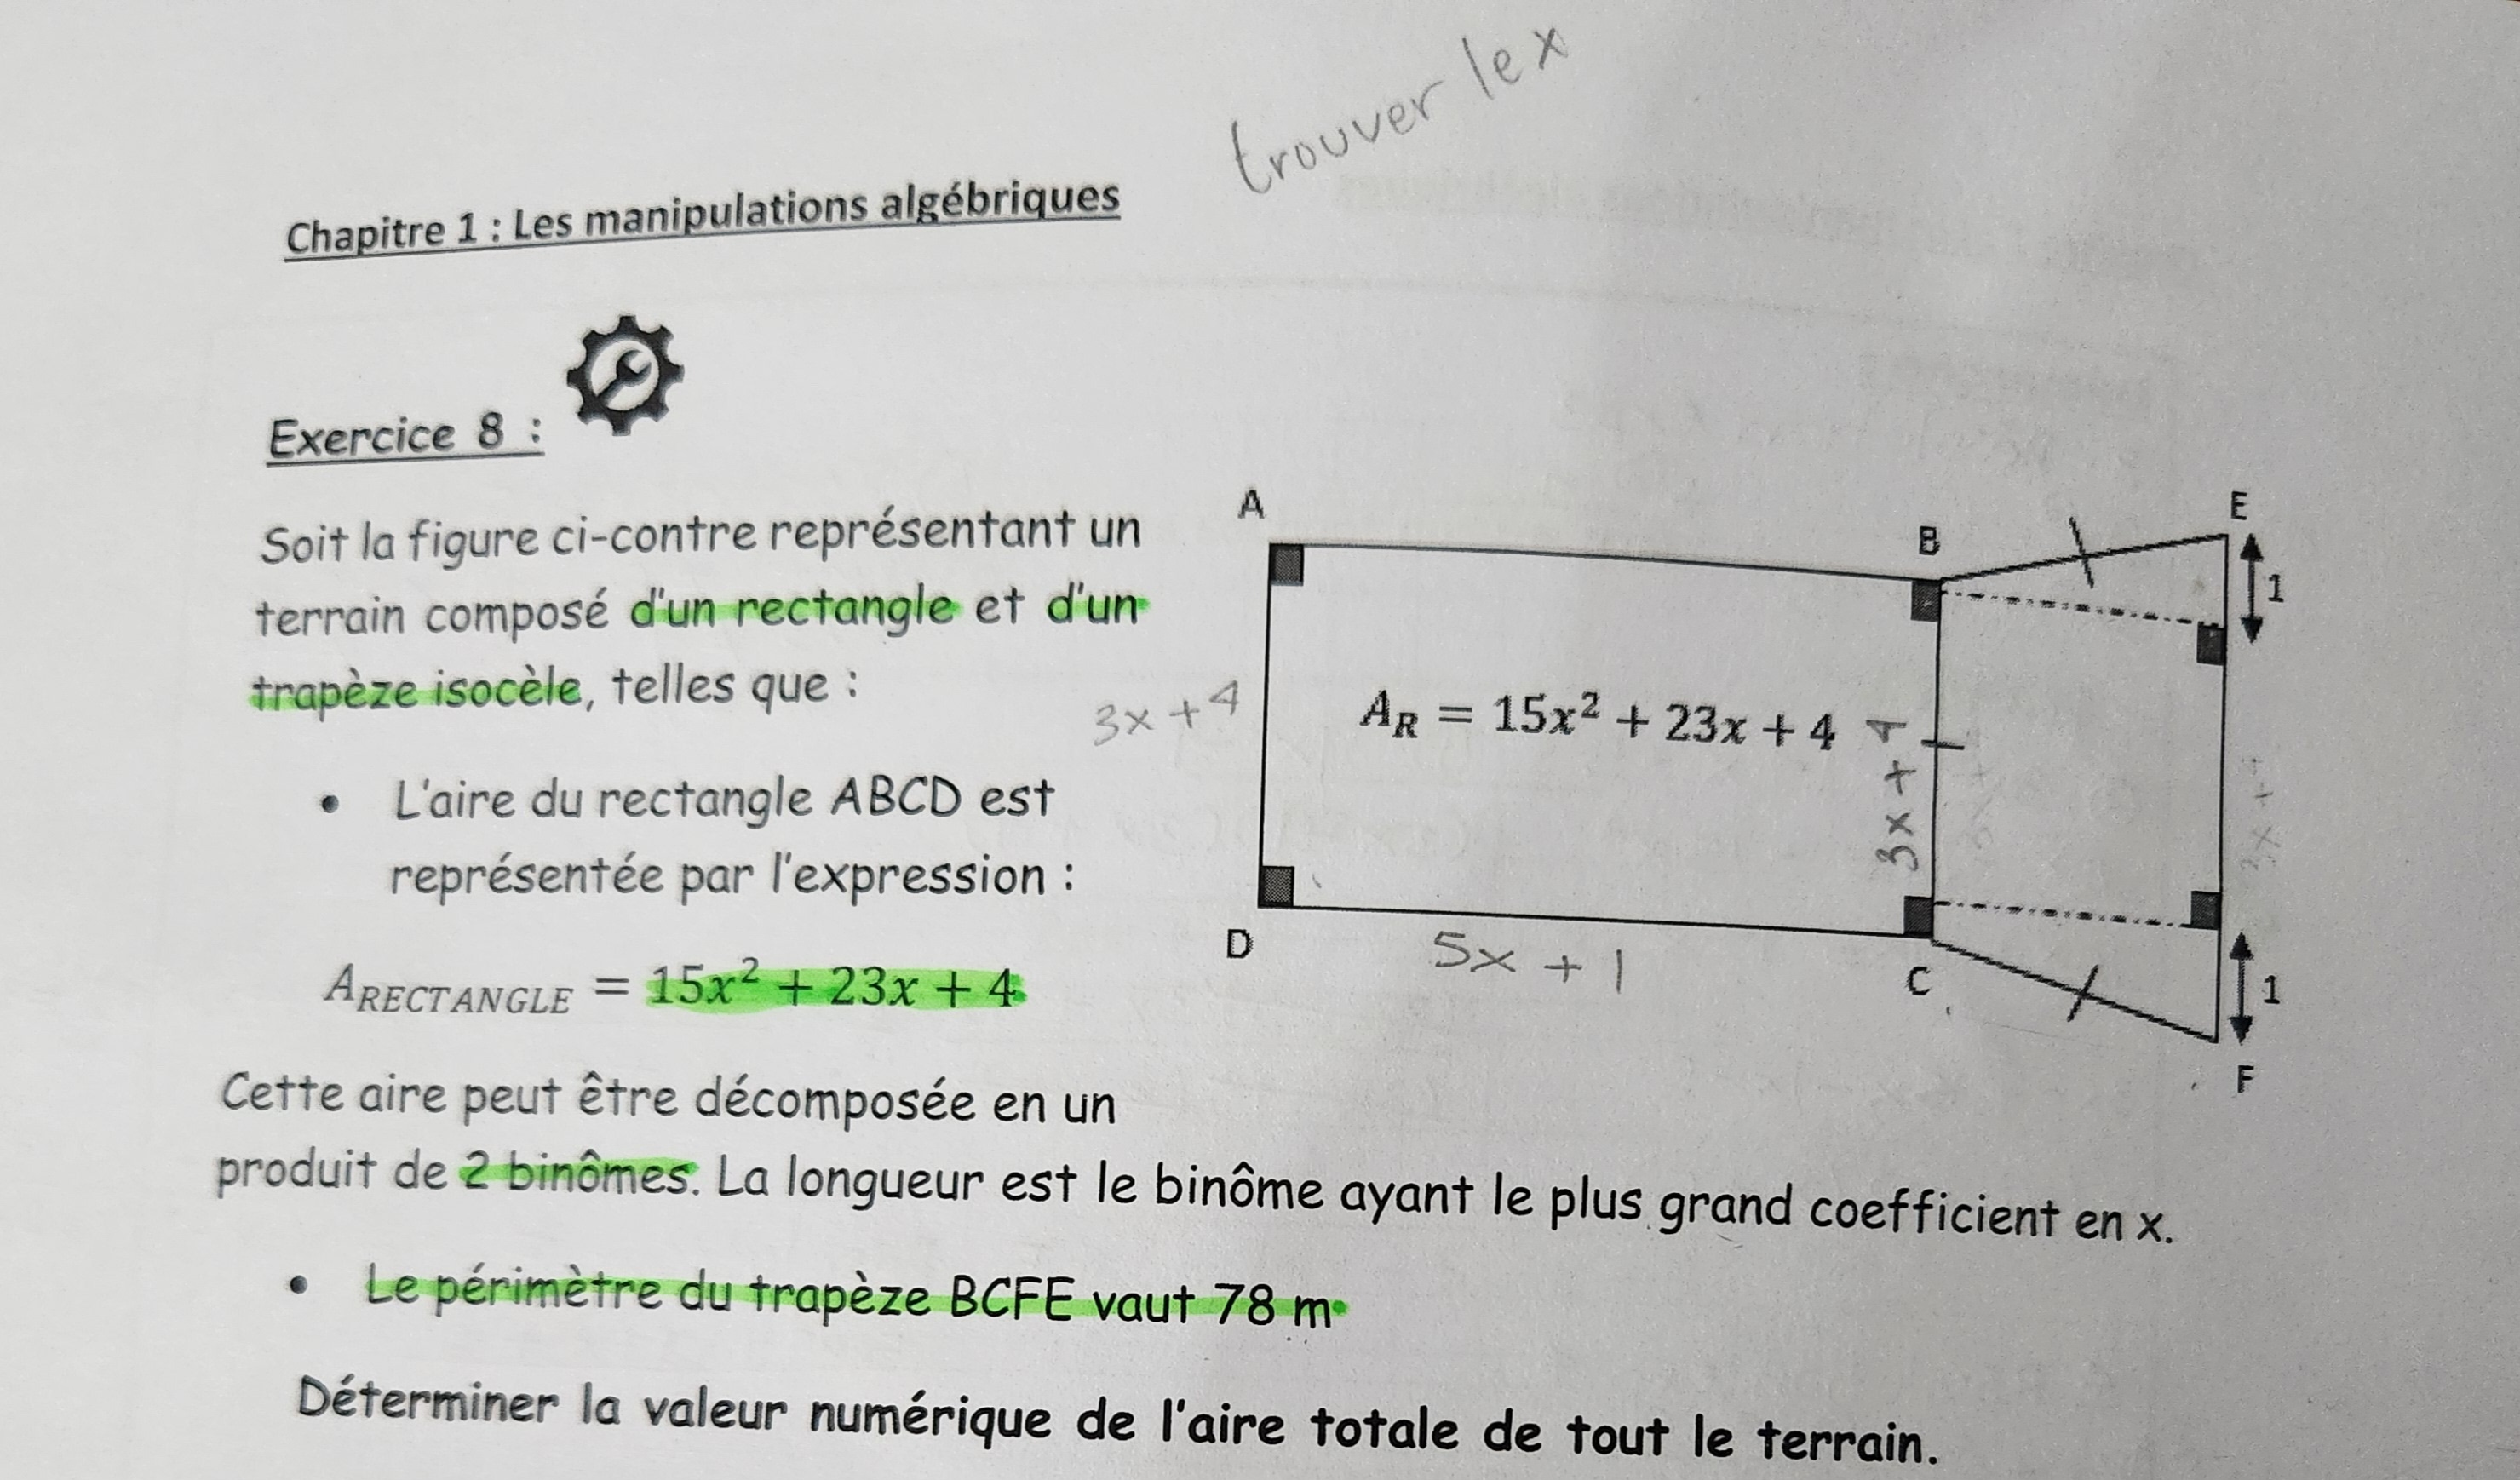 trouver le x
Chapitre 1 : Les manipulations algébriques
Exercice 8 :
Soit la figure ci-contre représentant un
terrain composé d'un rectangle et d'un
trapèze isocèle, telles que :
• L'aire du rectangle ABCD est
représentée par l'expression :
A_RECTANGLE = 15x² + 23x + 4
A
B
E
1
3x + 4
A_R = 15x² + 23x + 4
3x + 4
D
5x + 1
C
1
F
Cette aire peut être décomposée en un
produit de 2 binômes. La longueur est le binôme ayant le plus grand coefficient en x.
• Le périmètre du trapèze BCFE vaut 78 m
Déterminer la valeur numérique de l'aire totale de tout le terrain.